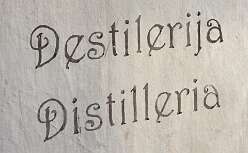 Destilerija
Distilleria